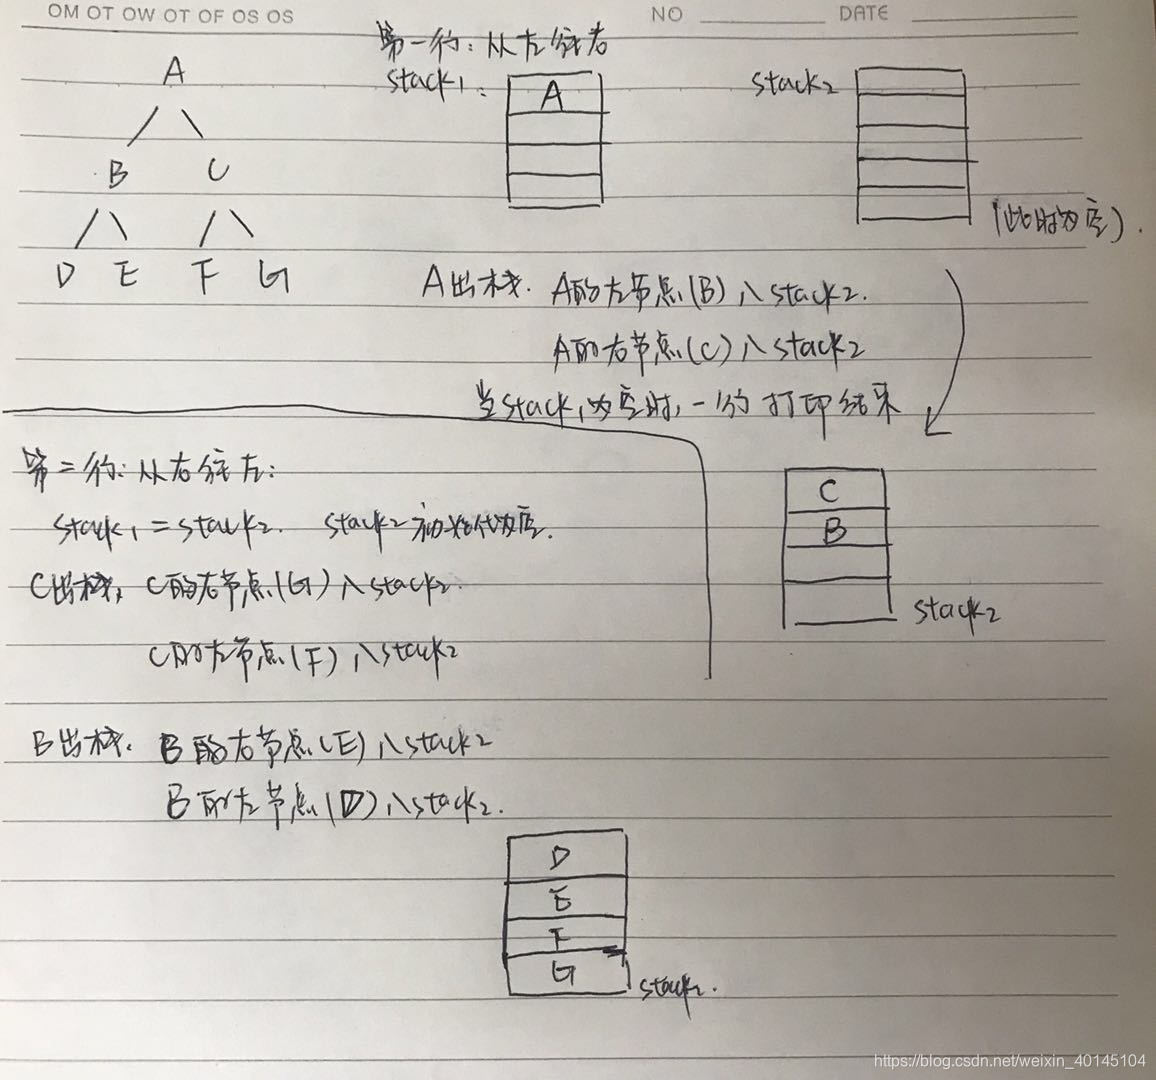 OM OT OW OT OF OS OS
NO
DATE
第一行：从左往右
stack1：
stack2
A
A
B C
D E F G
(此时为空).
A出栈. A的左节点(B)入stack2.
A的右节点(C)入stack2
当stack1为空时,一行打印结果
第二行：从右往左：
stack1=stack2. stack2初始化为空.
C
B
stack2
C出栈, C的右节点(G)入stack2.
C的左节点(F)入stack2
B出栈. B的右节点(E)入stack2
B的左节点(D)入stack2.
D
E
F
G
stack2.
https://blog.csdn.net/weixin_40145104